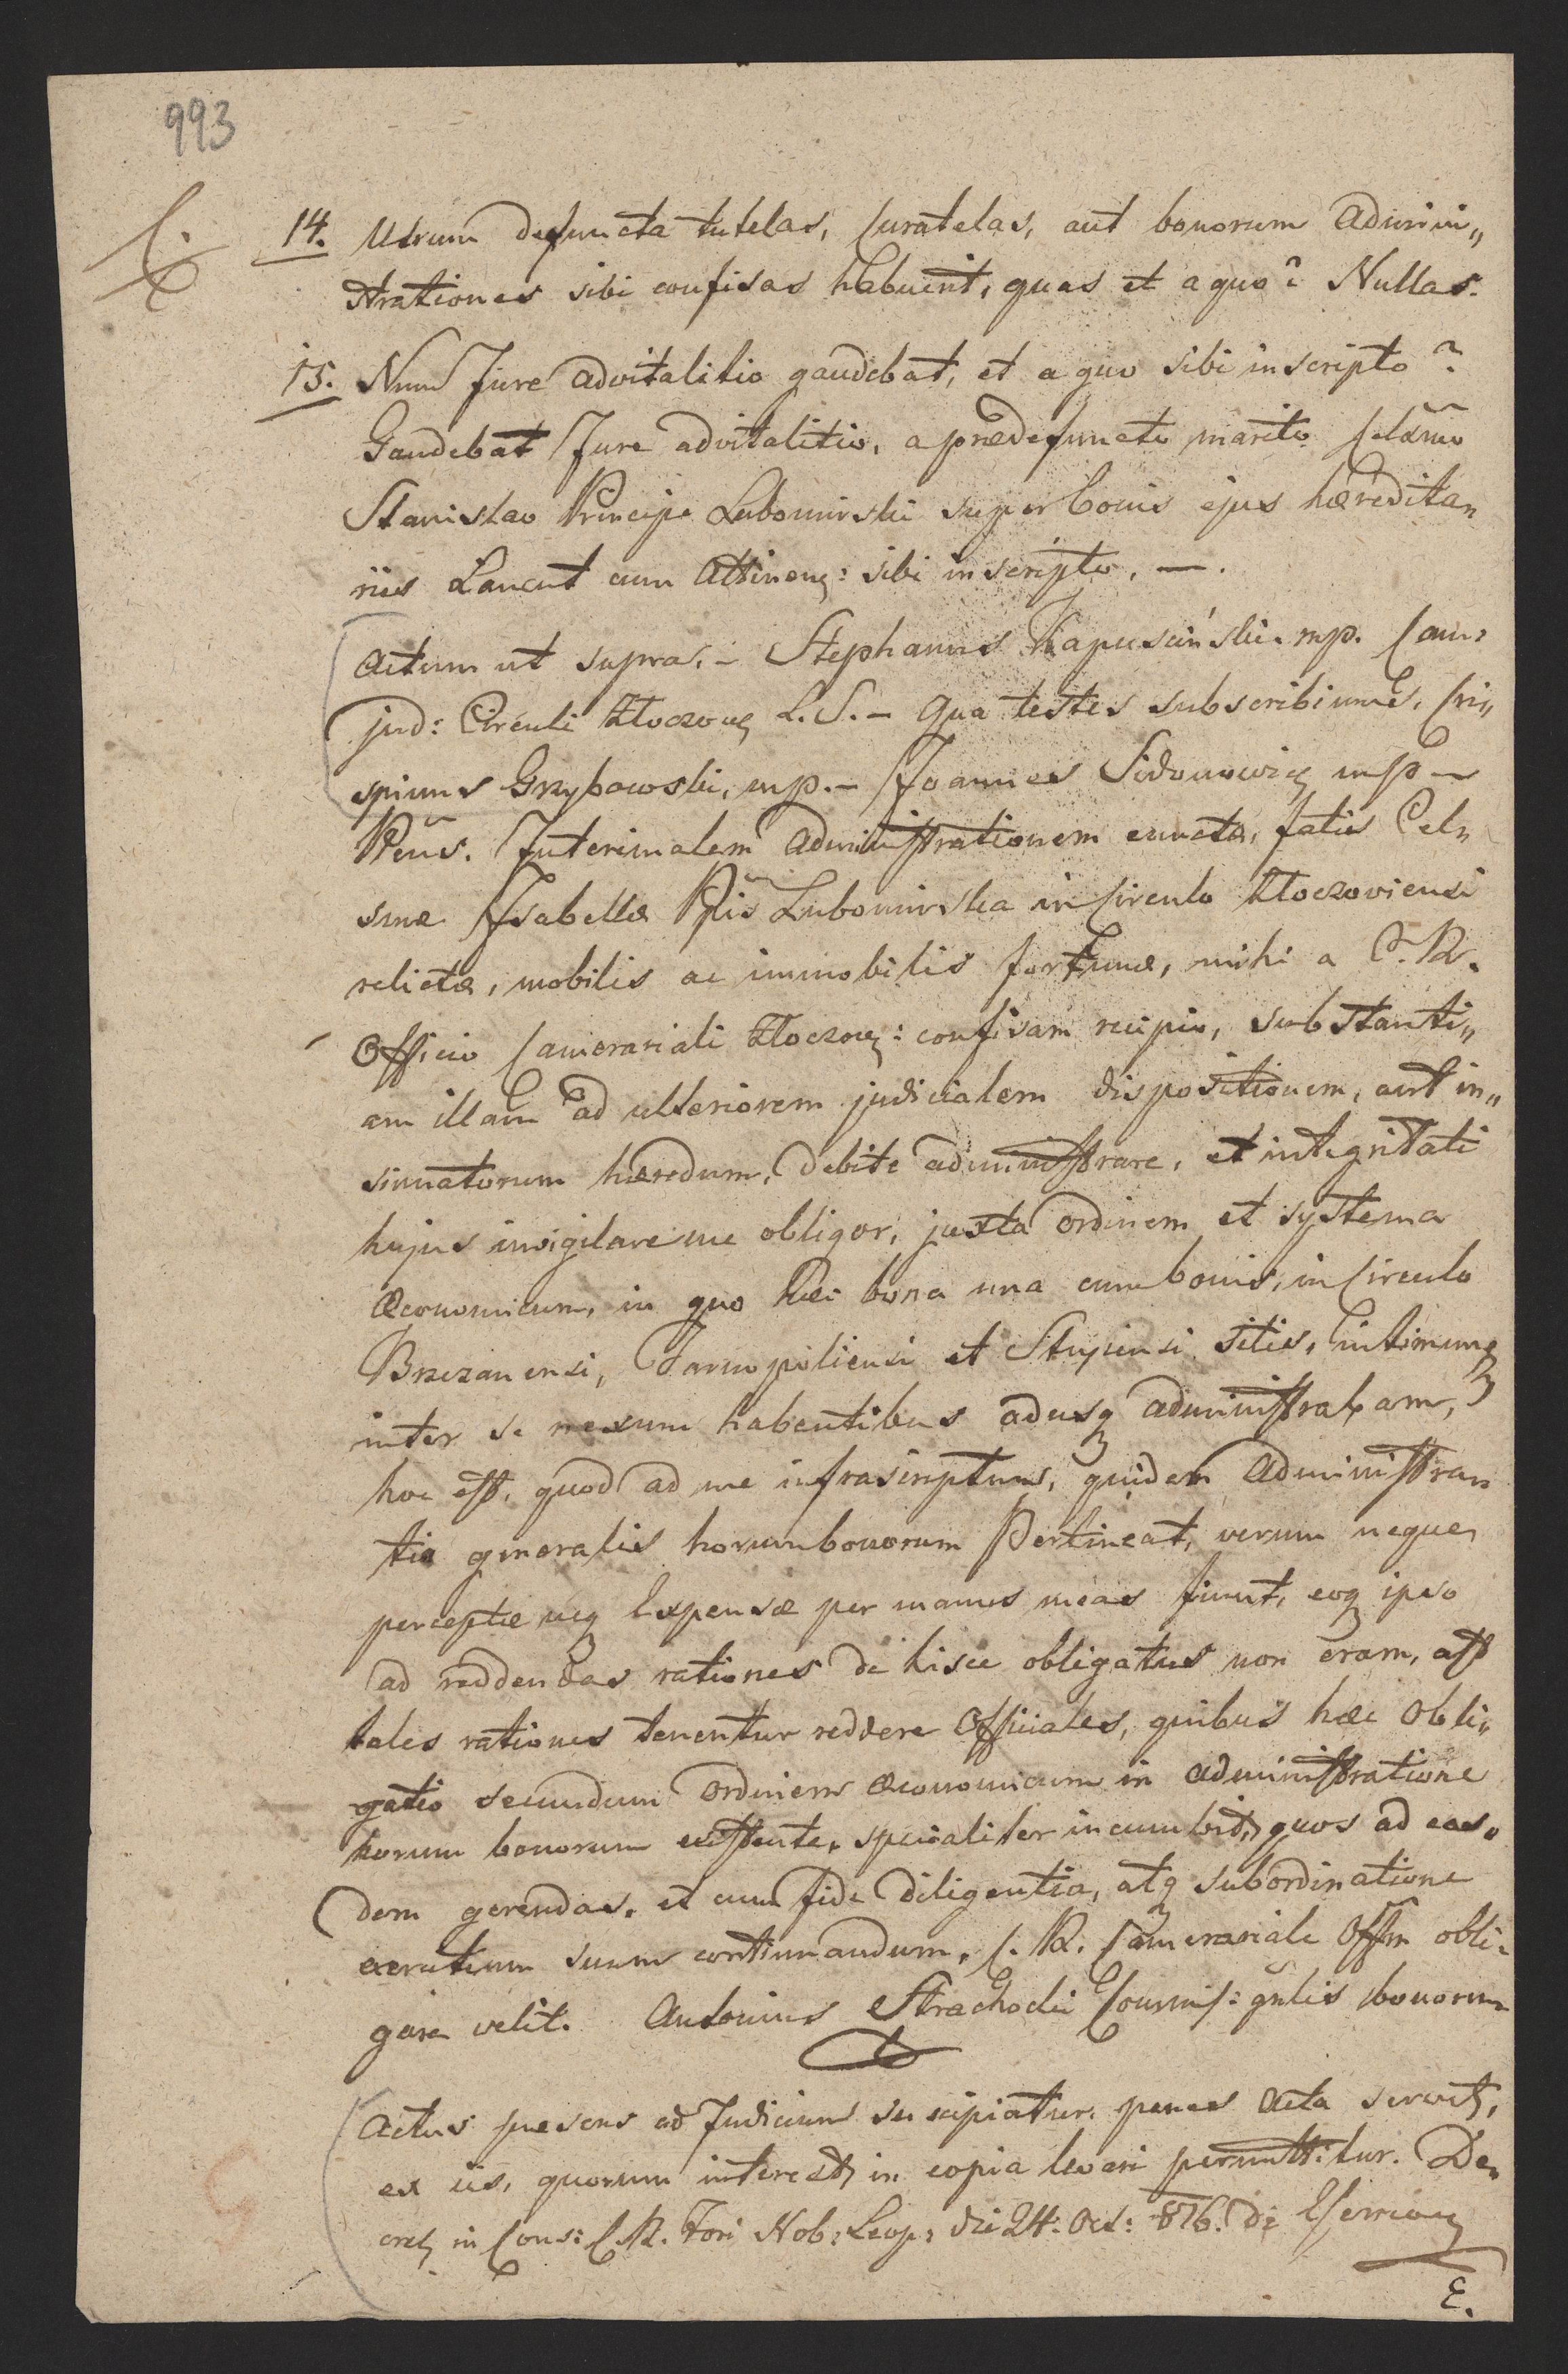 993
14. Utrum defuncta tutelas, Curatelas, aut bonorum Admini„
strationes sibi confisas habuerit, quas et a quo? Nullas.
15. Num Jure advitalitio gaudebat, et a quo sibi inscripto?
Gaudebat Jure advitalitio, a praedefuncto marito Celsmo
Stanislao Principe Lubomirski super bonis ejus haeredita„
riis Lancut cum Attinens: sibi inscripto, —.
Actum ut supra. – Stephanus Kapuściński mp. Cam:
jud: Circuli Złoczow L.S. – Qua testes subscribimus, Cri„
spinus Grzybowski, mp. – Joannes Sidonowicz mp –
Pens. Interimalem Administrationem cunctae, fatis Cel„
smae Isabellae Pis Lubomirska in Circulo Złoczoviensi
relictae, mobilis ac immobilis fortunae, mihi a C. R.
Officio Camerariali Złoczow: confisam recipio, substanti„
am illam ad ulteriorem judicialem dispositionem, aut in„
sinuatorum haeredum, debite administrare, et integritati
hujus invigilare me obligor, juxta ordinem et systema
Oeconomicum, in quo haec bona una cum bonis, in Circulo
Brzezanensi, Tarnopoliensi et Stryiensi sitis, intimumq
inter se nexum habentibus adusq administrabam,
hoc est, quod ad me infrascriptum, quidem Administran
tia generalis horum bonorum Pertineat, verum neque
perceptae neq Expensae per manus meas fiunt, eoq ipso
ad reddendas rationes de hisce obligatus non eram, ast
tales rationes tenentur reddere Officiales, quibus haec obli„
gatio secundum Ordinem Oeconomicum in administratione
horum bonorum existente, specialiter incumbit, quos ad eas„
dem gerendas, et cum fide diligentia, atq subordinatione
exercitium suum continuandum, C. R. Camerariale Offm obli„
gare velit. Antonius Strachocki Commis: gnlis bonorum
Actus praesens ad Judicium suscipiatur, penes Acta servet,
ex iis, quorum interest, in copia levari permittitur. De„
cret in Cons: C. R. Fori Nob: Leop: die 24: Oct: 816.
E.